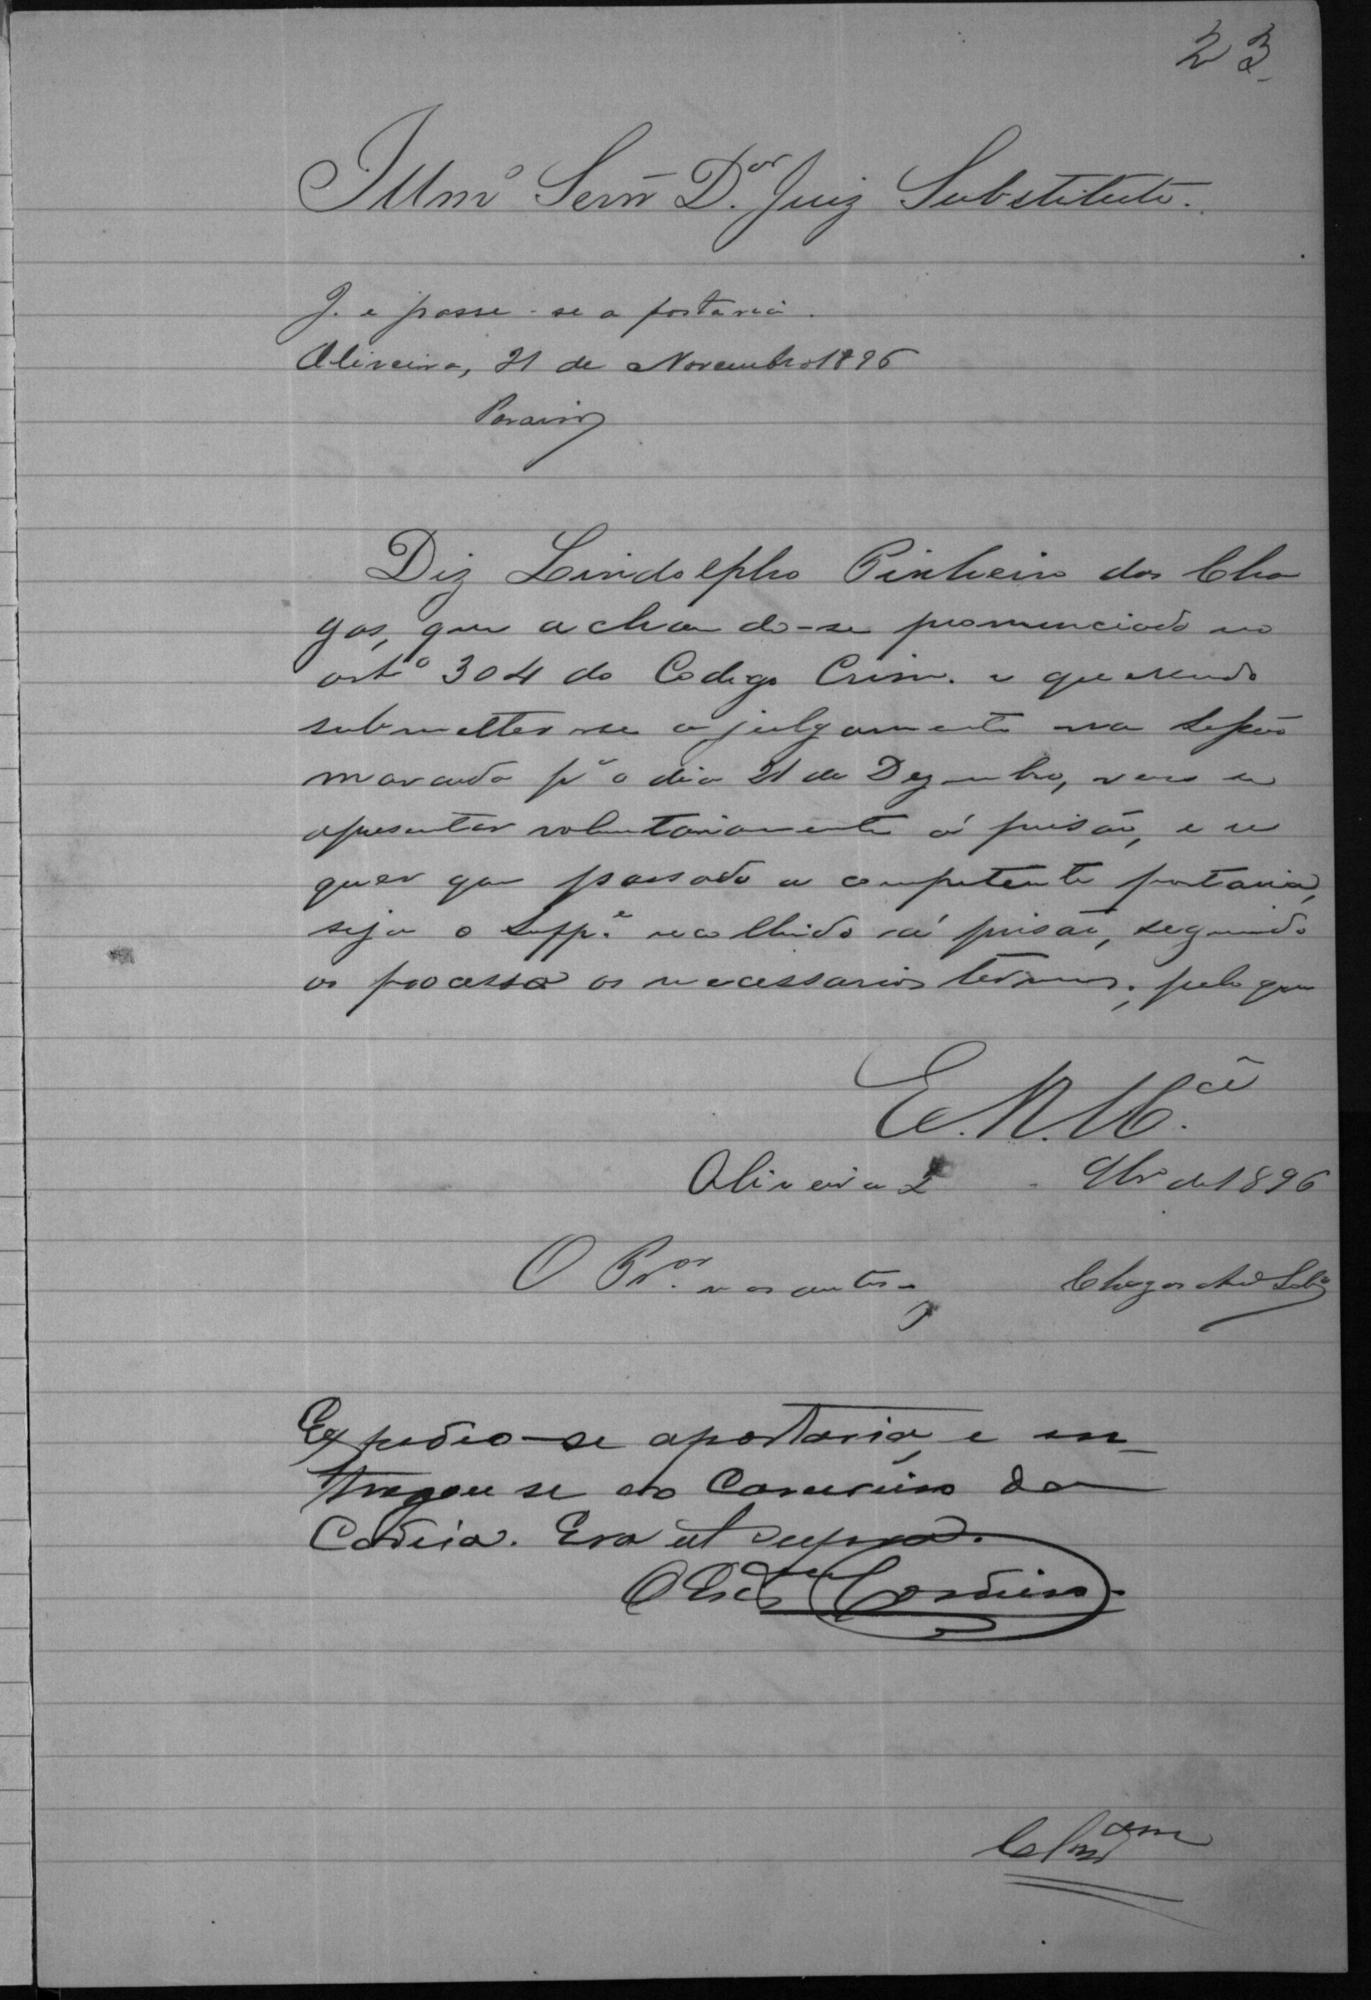 23
Illmº Senr D.or Juiz Substituto.
J. e passe-se a portaria.
Oliveira, 21 de Novembro 1896
Diz Lindolpho Pinheiro das Cha
gas, que achando-se pronunciado no
artº 304 do Codigo Crim. e querendo
submetter-se a julgamento na sessão
marcada pª o dia 21 de Dezembro, vem se
apresentar voluntariamente á prisão, e re
quer que passada a competente portaria,
seja o Suppe. recolhido á prisão, seguindo
o processo os necessarios termos; pelo que
E. R. M.cê
Oliveira 2 9br de 1896
O Pr.or nos autos,
Chagas Andº
Expedio-se a portaria, e en-
tregou se ao Carcereiro da
Cadeia. Era ut supra.
O Escam Cordeiro.
Clsam